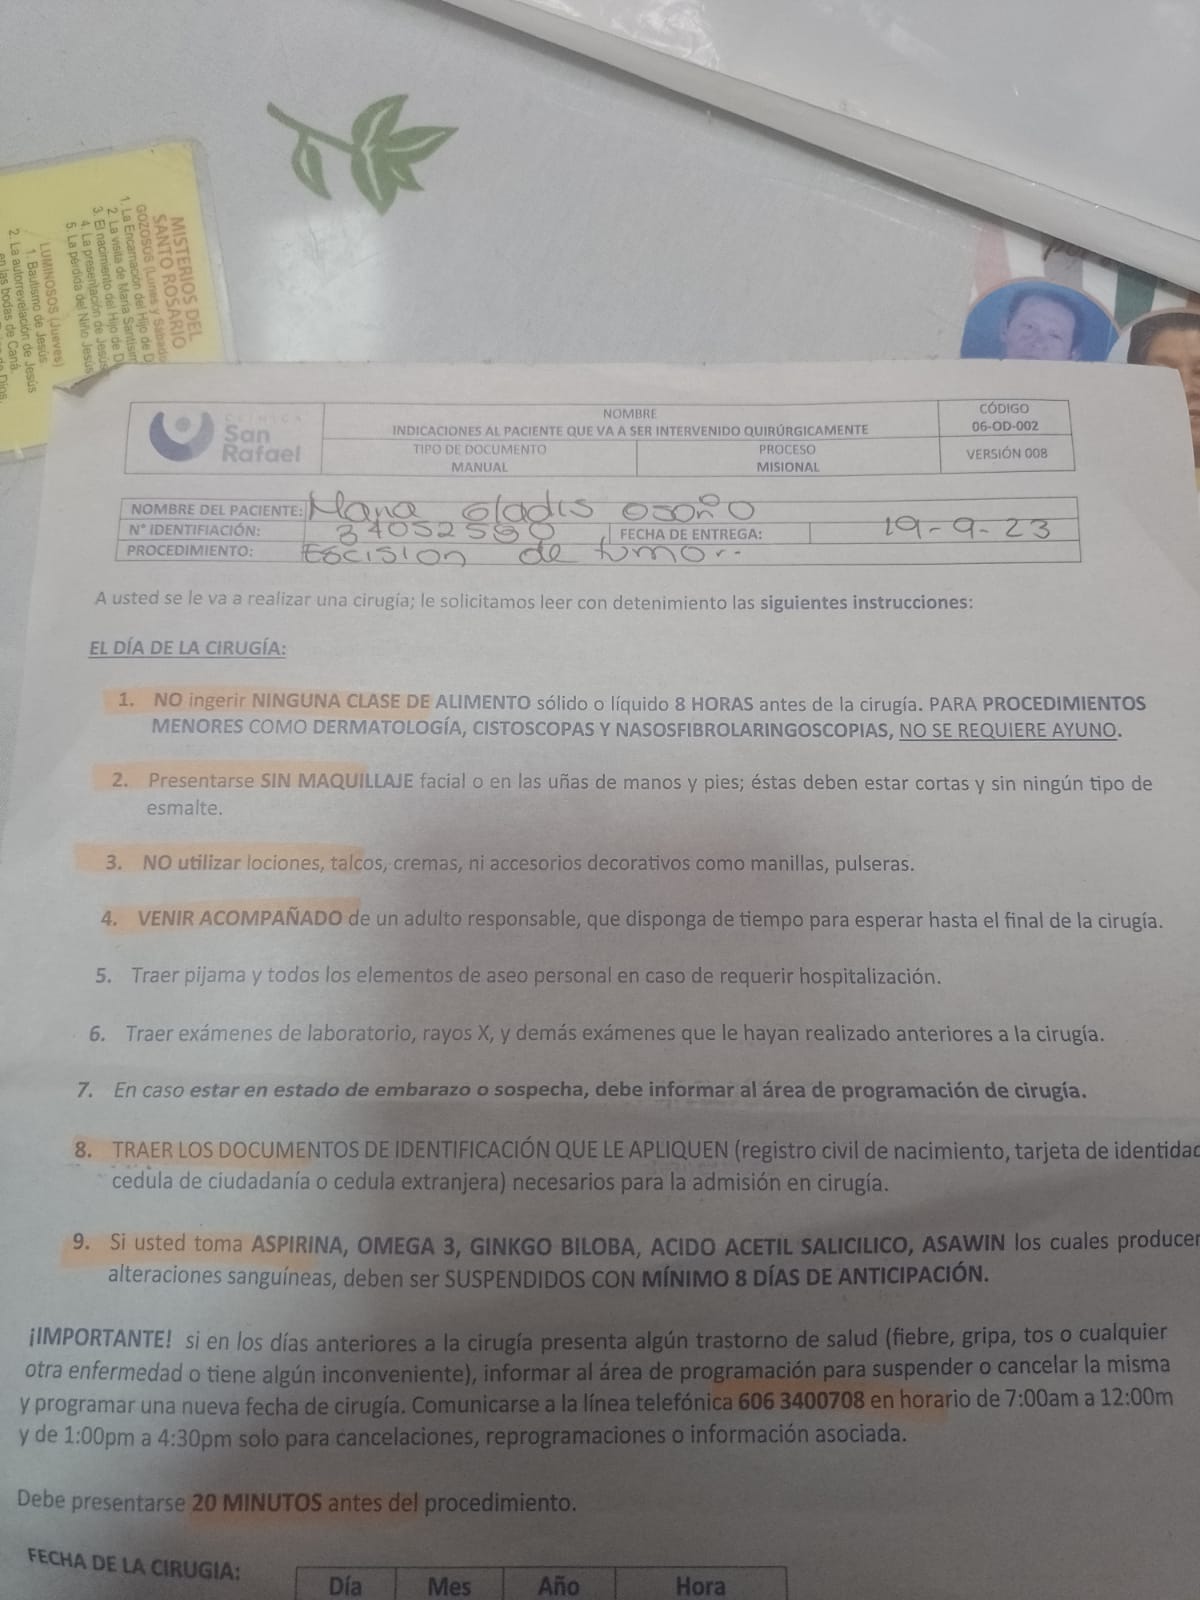 MISTERIOS DEL
SANTO ROSARIO
GOZOSOS (Lunes y Sábado
1. La Encarnación del Hijo de D
2. La visita de María Santísim
3. El nacimiento del Hijo de D
4. La presentación de Jesús
5. La pérdida del Niño Jesús
LUMINOSOS (Jueves)
1. Bautismo de Jesús
2. La autorrevelación de Jesús
en las bodas de Caná.
Dios.
CLINICA
San
Rafael
NOMBRE
INDICACIONES AL PACIENTE QUE VA A SER INTERVENIDO QUIRÚRGICAMENTE
CÓDIGO
06-OD-002
TIPO DE DOCUMENTO
MANUAL
PROCESO
MISIONAL
VERSIÓN 008
NOMBRE DEL PACIENTE: Maria Gladis Osorio
N° IDENTIFIACIÓN: FECHA DE ENTREGA: 19-9-23
PROCEDIMIENTO: Escision de tumor.
A usted se le va a realizar una cirugía; le solicitamos leer con detenimiento las siguientes instrucciones:
EL DÍA DE LA CIRUGÍA:
1. NO ingerir NINGUNA CLASE DE ALIMENTO sólido o líquido 8 HORAS antes de la cirugía. PARA PROCEDIMIENTOS
MENORES COMO DERMATOLOGÍA, CISTOSCOPAS Y NASOSFIBROLARINGOSCOPIAS, NO SE REQUIERE AYUNO.
2. Presentarse SIN MAQUILLAJE facial o en las uñas de manos y pies; éstas deben estar cortas y sin ningún tipo de
esmalte.
3. NO utilizar lociones, talcos, cremas, ni accesorios decorativos como manillas, pulseras.
4. VENIR ACOMPAÑADO de un adulto responsable, que disponga de tiempo para esperar hasta el final de la cirugía.
5. Traer pijama y todos los elementos de aseo personal en caso de requerir hospitalización.
6. Traer exámenes de laboratorio, rayos X, y demás exámenes que le hayan realizado anteriores a la cirugía.
7. En caso estar en estado de embarazo o sospecha, debe informar al área de programación de cirugía.
8. TRAER LOS DOCUMENTOS DE IDENTIFICACIÓN QUE LE APLIQUEN (registro civil de nacimiento, tarjeta de identidad
cedula de ciudadanía o cedula extranjera) necesarios para la admisión en cirugía.
9. Si usted toma ASPIRINA, OMEGA 3, GINKGO BILOBA, ACIDO ACETIL SALICILICO, ASAWIN los cuales producen
alteraciones sanguíneas, deben ser SUSPENDIDOS CON MÍNIMO 8 DÍAS DE ANTICIPACIÓN.
¡IMPORTANTE! si en los días anteriores a la cirugía presenta algún trastorno de salud (fiebre, gripa, tos o cualquier
otra enfermedad o tiene algún inconveniente), informar al área de programación para suspender o cancelar la misma
y programar una nueva fecha de cirugía. Comunicarse a la línea telefónica 606 3400708 en horario de 7:00am a 12:00m
y de 1:00pm a 4:30pm solo para cancelaciones, reprogramaciones o información asociada.
Debe presentarse 20 MINUTOS antes del procedimiento.
FECHA DE LA CIRUGIA:
Día Mes Año Hora